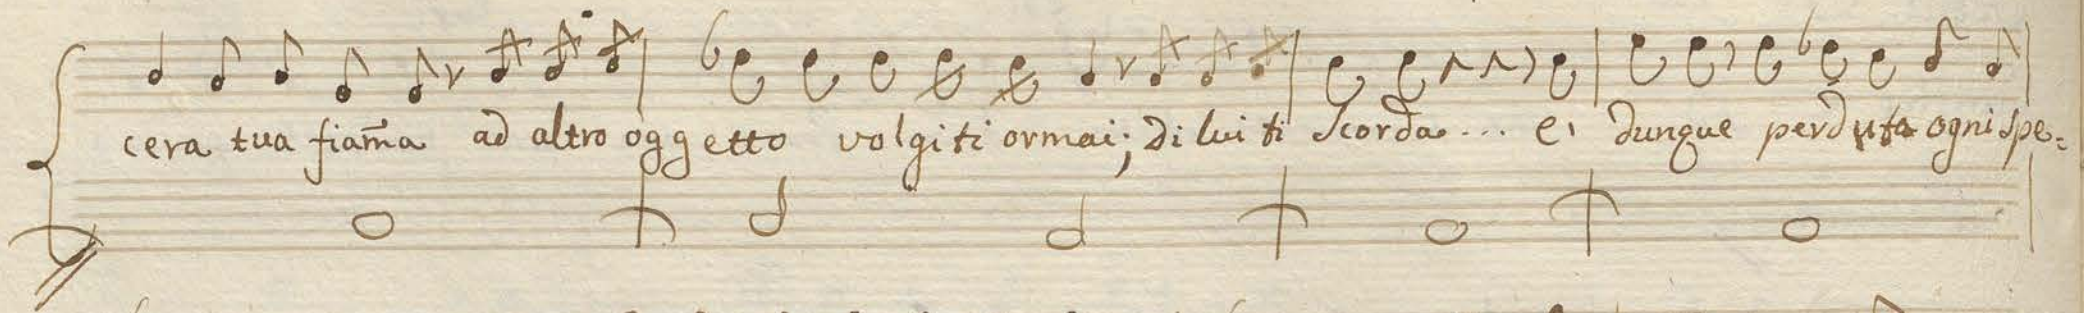 cera tua fiam̃a ad altro oggetto volgiti ormai; di lui ti scorda... e' dunque perduta ogni spe=